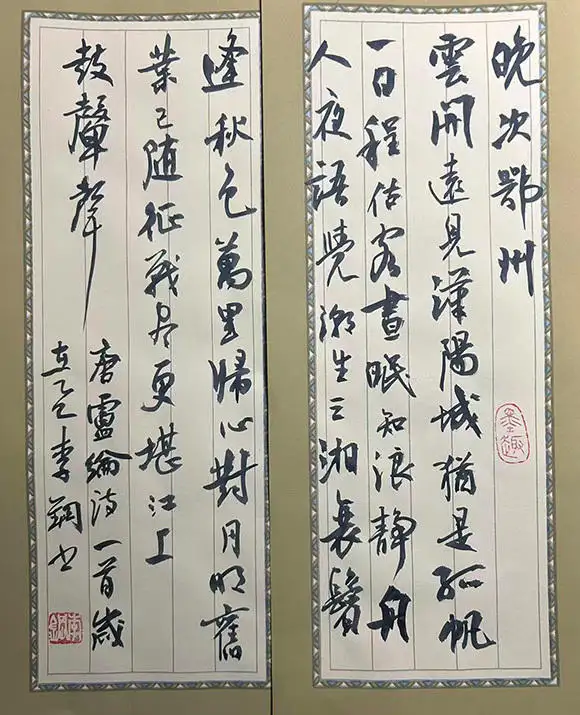 晚次鄂州
墨趣
雲開遠見漢陽城猶是孤帆
一日程估客晝眠知浪靜舟
人夜語覺潮生三湘衰鬢
逢秋色萬里歸心對月明舊
業已随征戰盡更堪江上
鼓鼙聲
唐盧綸诗一首歲
在乙巳李鋼书